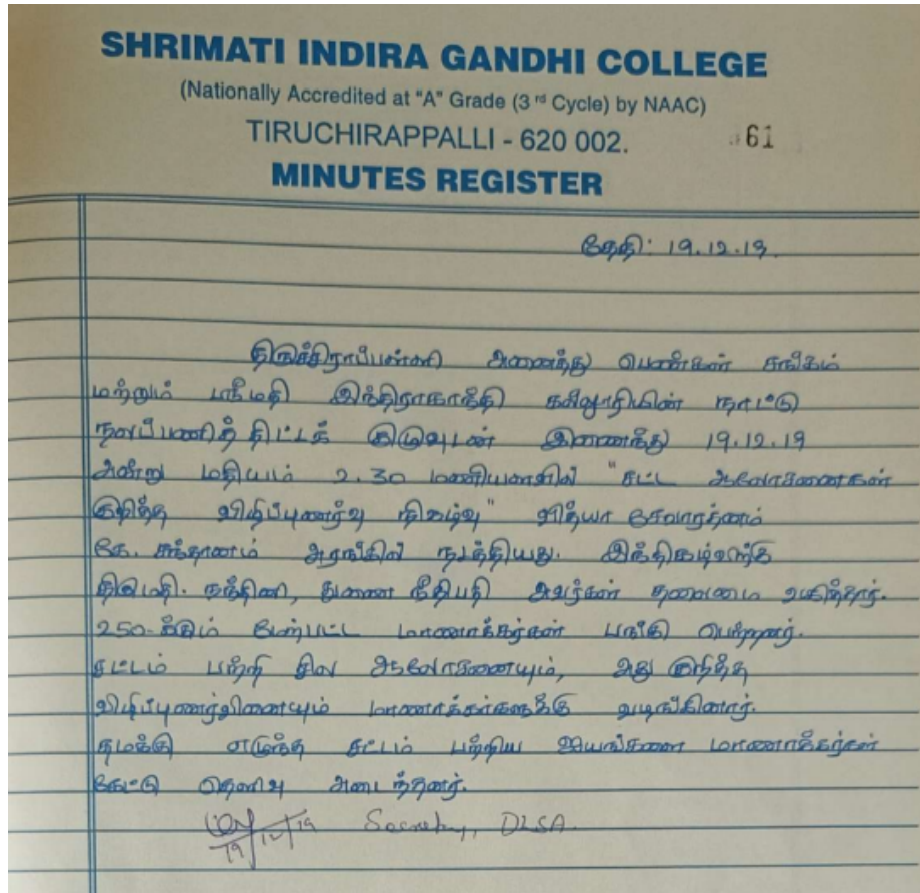 SHRIMATI INDIRA GANDHI COLLEGE
(Nationally Accredited at "A" Grade (3rd Cycle) by NAAC)
TIRUCHIRAPPALLI - 620 002. 61
MINUTES REGISTER
தேதி: 19.12.19.
திருச்சிராப்பள்ளி அனைத்து பெண்கள் சங்கம்
மற்றும் ஸ்ரீமதி இந்திராகாந்தி கல்லூரியின் நாட்டு
நலப்பணித் திட்டக் குழுவுடன் இணைந்து 19.12.19
அன்று மதியம் 2.30 மணியளவில் "சட்ட ஆலோசனைகள்
குறித்த விழிப்புணர்வு நிகழ்வு" வித்யா சேவாரத்னம்
கே. சந்தானம் அரங்கில் நடத்தியது. இந்நிகழ்விற்கு
திருமதி. நந்தினி, துணை நீதிபதி அவர்கள் தலைமை வகித்தார்.
250-க்கும் மேற்பட்ட மாணாக்கர்கள் பங்கு பெற்றனர்.
சட்டம் பற்றி சில ஆலோசனையும், அது குறித்த
விழிப்புணர்வினையும் மாணாக்கர்களுக்கு வழங்கினார்.
தமக்கு எழுந்த சட்டம் பற்றிய ஐயங்களை மாணாக்கர்கள்
கேட்டு தெளிவு அடைந்தனர்.
19/12/19 Secretary, DLSA.